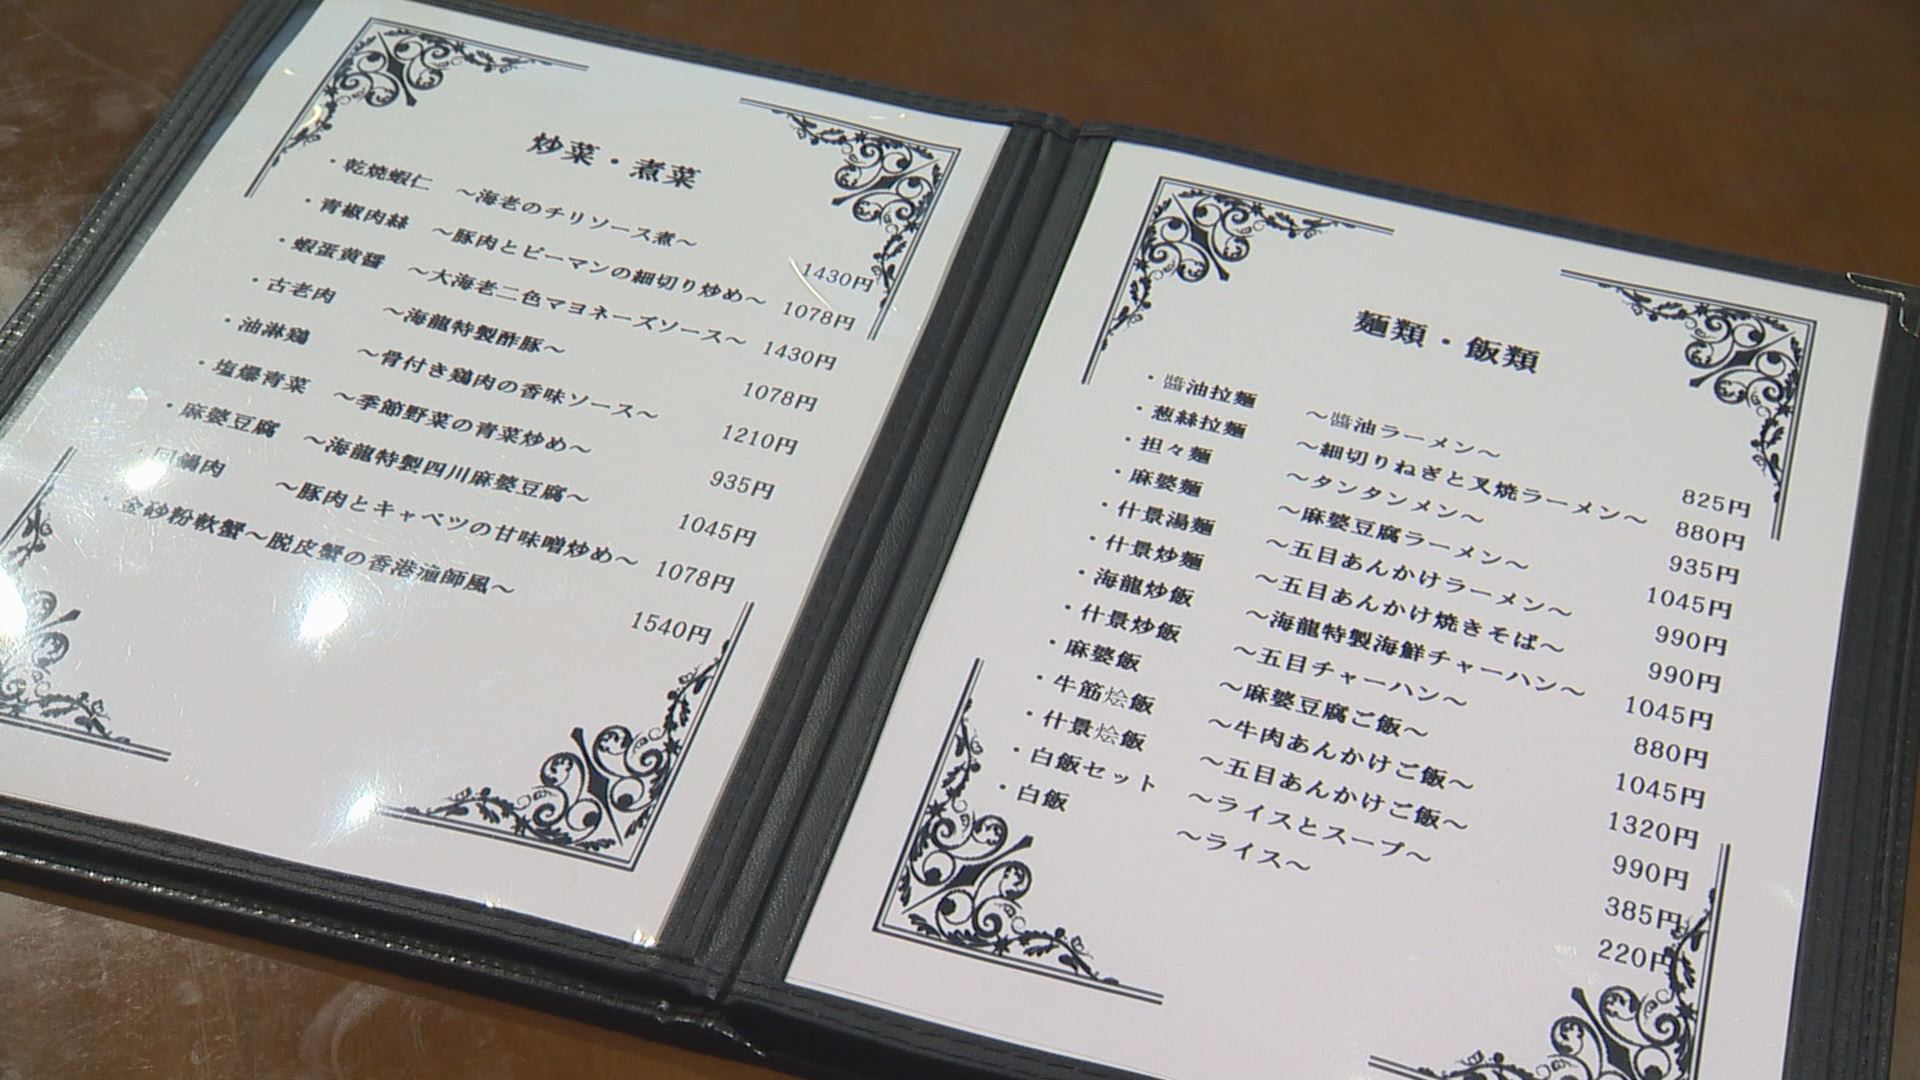 炒菜・煮菜
・乾焼蝦仁 ～海老のチリソース煮～ 1430円
・青椒肉絲 ～豚肉とピーマンの細切り炒め～ 1078円
・蝦蛋黄醤 ～大海老二色マヨネーズソース～ 1430円
・古老肉 ～海龍特製酢豚～ 1078円
・油淋鶏 ～骨付き鶏肉の香味ソース～ 1210円
・塩爆青菜 ～季節野菜の青菜炒め～ 935円
・麻婆豆腐 ～海龍特製四川麻婆豆腐～ 1045円
・回鍋肉 ～豚肉とキャベツの甘味噌炒め～ 1078円
・金砂粉軟蟹～脱皮蟹の香港漁師風～ 1540円
麺類・飯類
・醬油拉麺 ～醬油ラーメン～ 825円
・葱絲拉麺 ～細切りねぎと叉焼ラーメン～ 880円
・担々麺 ～タンタンメン～ 935円
・麻婆麺 ～麻婆豆腐ラーメン～ 1045円
・什景湯麺 ～五目あんかけラーメン～ 990円
・什景炒麺 ～五目あんかけ焼きそば～ 990円
・海龍炒飯 ～海龍特製海鮮チャーハン～ 1045円
・什景炒飯 ～五目チャーハン～ 880円
・麻婆飯 ～麻婆豆腐ご飯～ 1045円
・牛筋烩飯 ～牛肉あんかけご飯～ 1320円
・什景烩飯 ～五目あんかけご飯～ 990円
・白飯セット ～ライスとスープ～ 385円
・白飯 ～ライス～ 220円